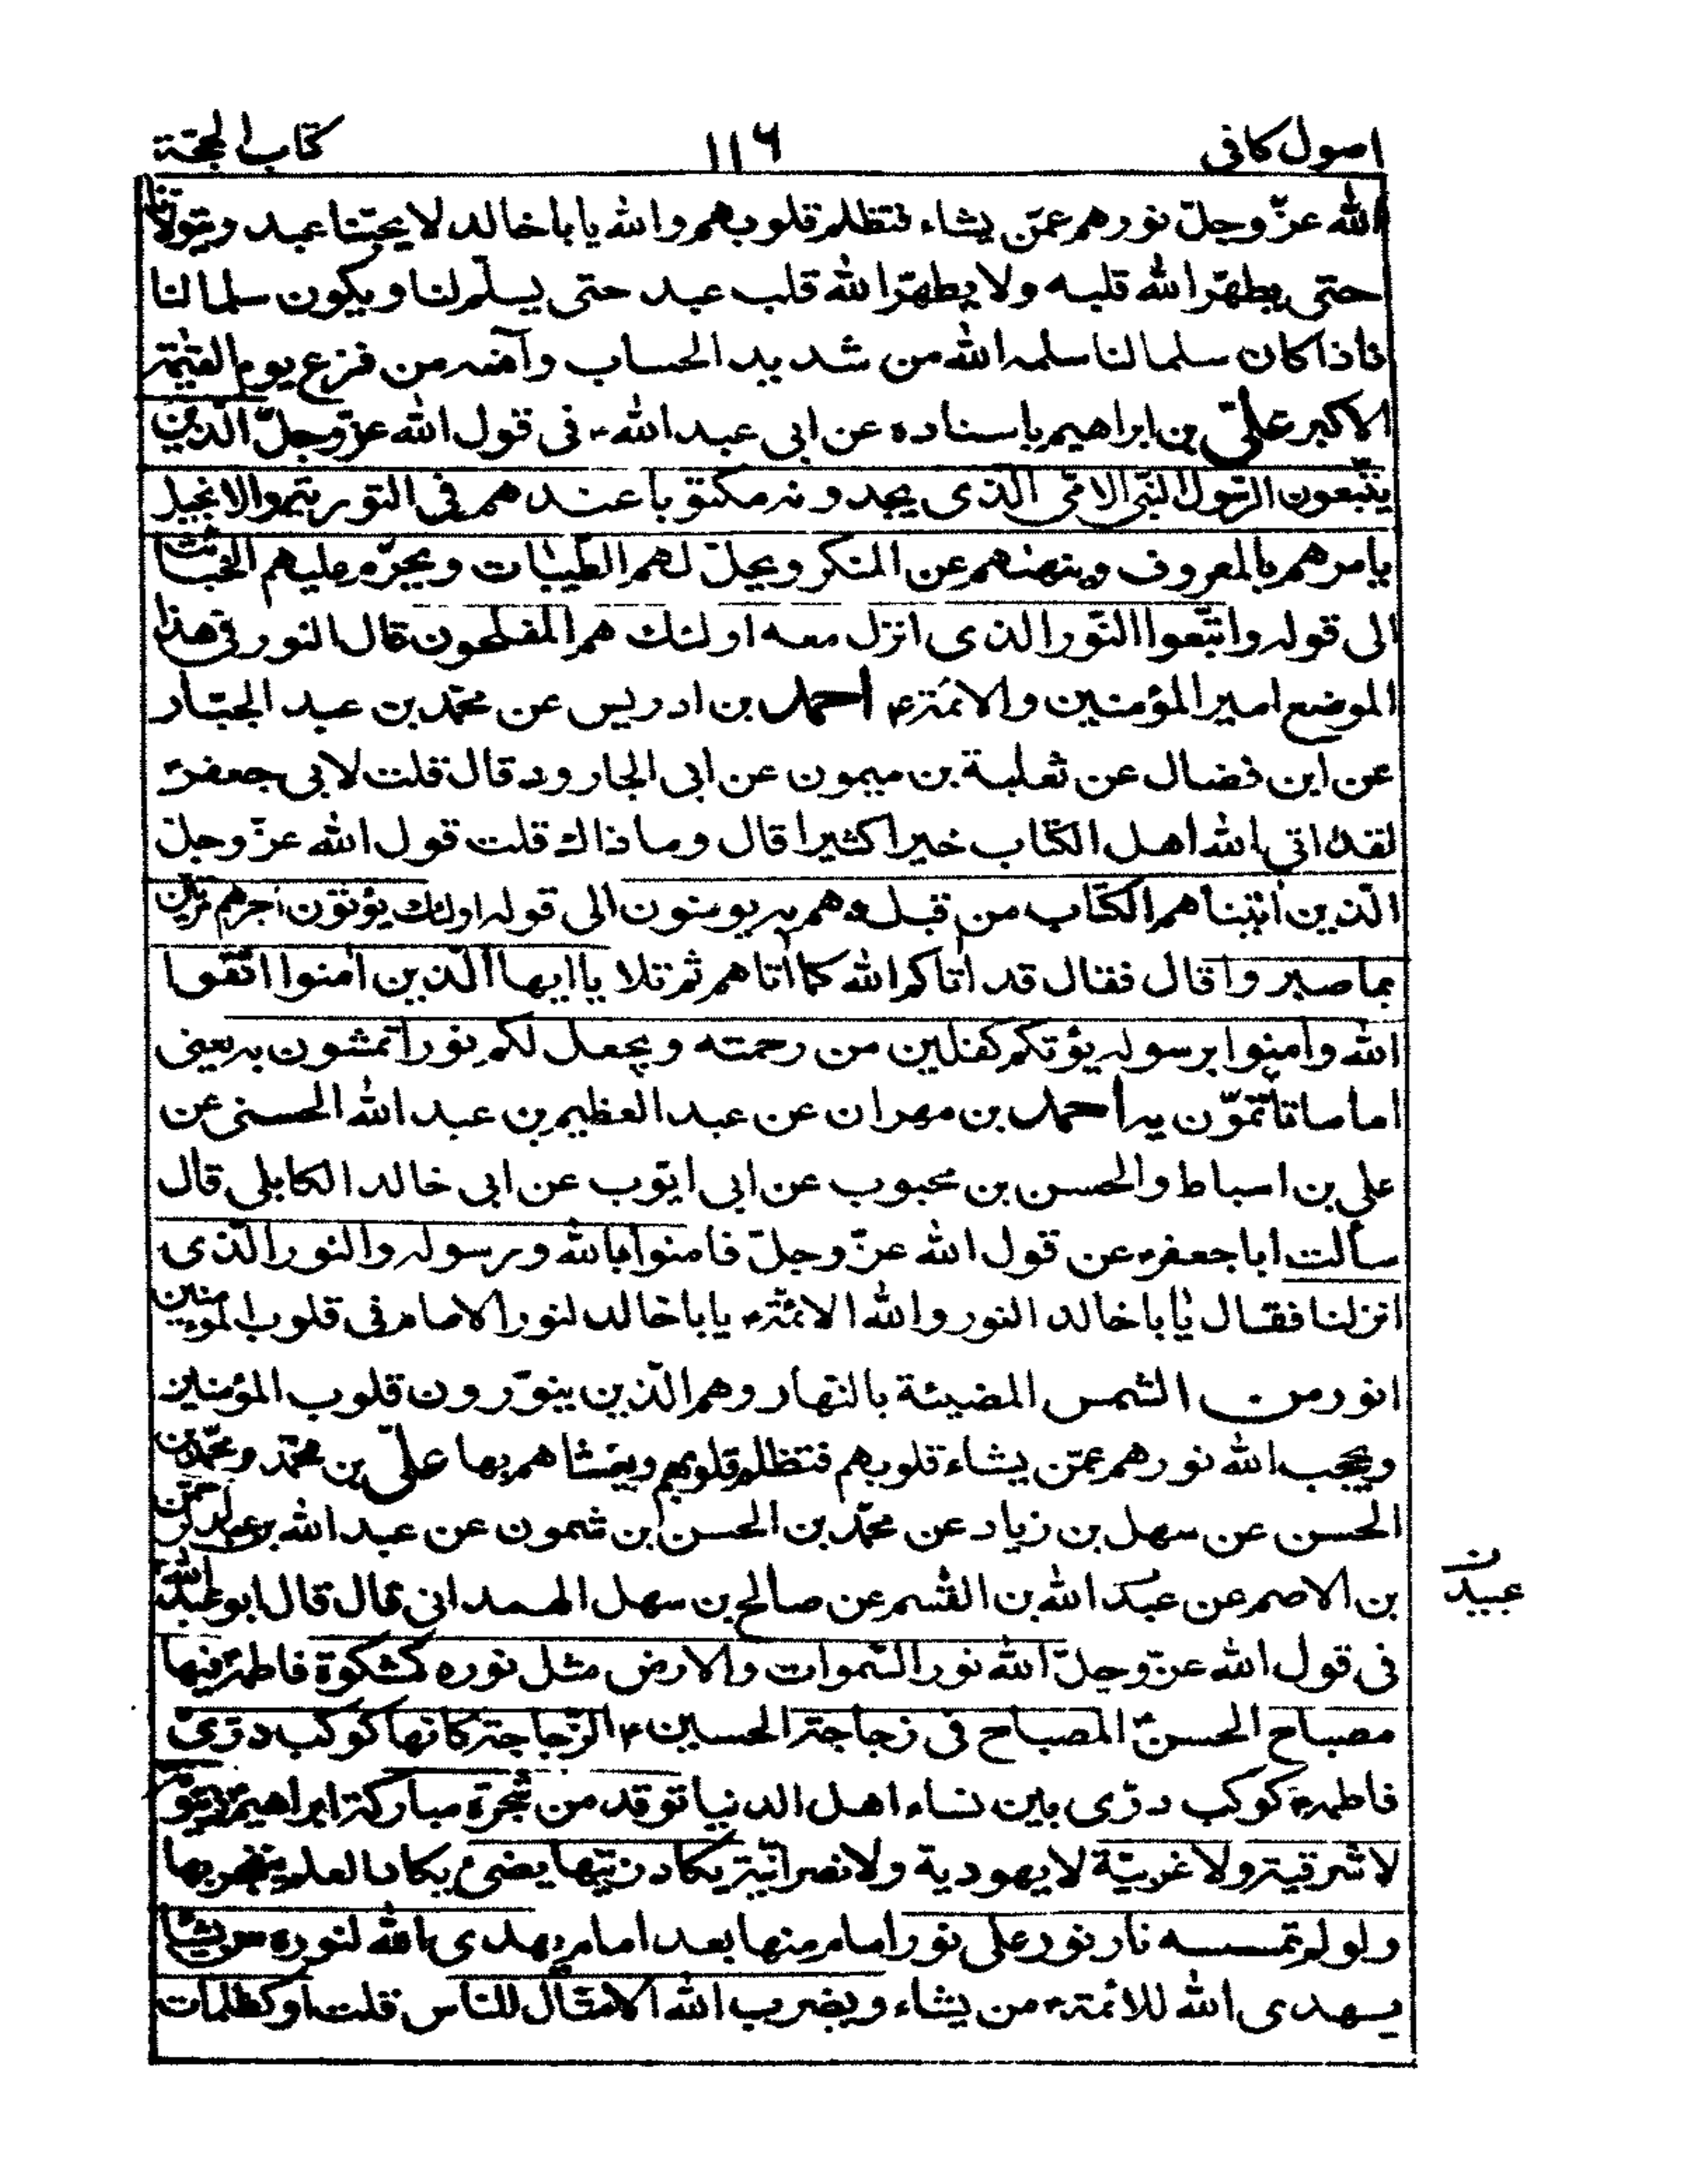 اصول كافى ١١٦ كتاب الحجّة
الله عزّ وجلّ نورهم عمّن يشاء فتظلم قلوبهم والله يا باخالد لا يحبّنا عبد ويتولّانا
حتى يطهّر الله قلبه ولا يطهّر الله قلب عبد حتى يسلّم لنا ويكون سلما لنا
فاذا كان سلما لنا سلمه الله من شديد الحساب وآمنه من فزع يوم القيٰمة
الاكبر علىّ بن ابراهيم باسناده عن ابى عبد الله ع فى قول الله عزّ وجلّ الّذين
يتّبعون الرّسول النّبىّ الامّى الّذى يجدونه مكتوبا عندهم فى التوريٰة والانجيل
يامرهم بالمعروف وينهٰهم عن المنكر ويحلّ لهم الطّيّبات ويحرّم عليهم الخبائث
الى قوله واتّبعوا النّور الذى انزل معه اولئك هم المفلحون قال النور فى هذا
الموضع امير المؤمنين والائمّة ع احمد بن ادريس عن محمّد بن عبد الجبّار
عن ابن فضال عن ثعلبة بن ميمون عن ابى الجارود قال قلت لابى جعفر ع
لقد اتى الله اهل الكتاب خيرا كثيرا قال وما ذاك قلت قول الله عزّ وجلّ
الّذين اٰتيناهم الكتاب من قبله هم به يومنون الى قوله اولئك يؤتون اجرهم مرّتين
بما صبروا قال فقال قد اٰتاكم الله كما اٰتاهم ثم تلا يا ايها الّذين اٰمنوا اتّقوا
الله واٰمنوا برسوله يؤتكم كفلين من رحمته ويجعل لكم نورا تمشون به يعنى
اماما تأتمّون به احمد بن مهران عن عبد العظيم بن عبد الله الحسنى عن
على بن اسباط والحسن بن محبوب عن ابى ايّوب عن ابى خالد الكابلى قال
سألت ابا جعفر ع عن قول الله عزّ وجلّ فاٰمنوا بالله ورسوله والنور الّذى
انزلنا فقال يا با خالد النور والله الائمّة ع يا با خالد لنور الامام فى قلوب المومنين
انور من الشمس المضيئة بالنهار وهم الّذين ينوّرون قلوب المؤمنين
ويحجب الله نورهم عمّن يشاء قلوبهم فتظلم قلوبهم ويغشاهم بها علىّ بن محمّد ومحمّد بن
الحسن عن سهل بن زياد عن محمّد بن الحسن بن شمون عن عبد الله بن عبد الرحمٰن
بن الاصم عن عبد الله بن القٰسم عن صالح بن سهل الهمدانى قال قال ابو عبد الله ع
عبيد ن
فى قول الله عزّ وجلّ الله نور السّموات والارض مثل نوره كمشكوٰة فاطمة ع فيها
مصباح الحسن ع المصباح فى زجاجة الحسين ع الزّجاجة كانها كوكب درّىّ
فاطمة ع كوكب درّى بين نساء اهل الدنيا توقد من شجرة مباركة ابراهيم ع زيتونة
لا شرقية ولا غربيّة لا يهودية ولا نصرانيّة يكاد زيتها يضىء يكاد العلم ينفجر بها
ولو لم تمسسه نار نور على نور امام منها بعد امام يهدى الله لنوره من يشاء
يهدى الله للائمّة ع من يشاء ويضرب الله الامثال للناس قلت او كظلمات